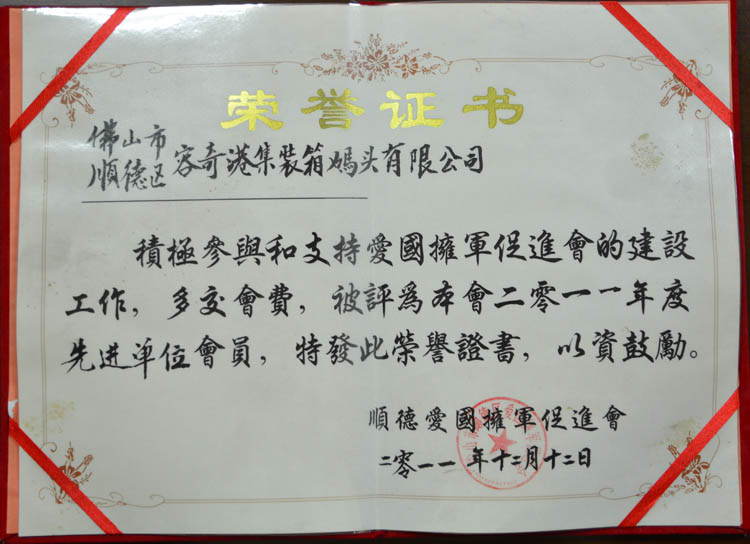 荣誉证书
佛山市
順德区容奇港集装箱碼头有限公司
積極參與和支持愛國擁軍促進會的建設
工作，多交會費，被評爲本會二零一一年度
先进单位會員，特發此榮譽證書，以資鼓勵。
順德愛國擁軍促進會
二零一一年十二月十二日